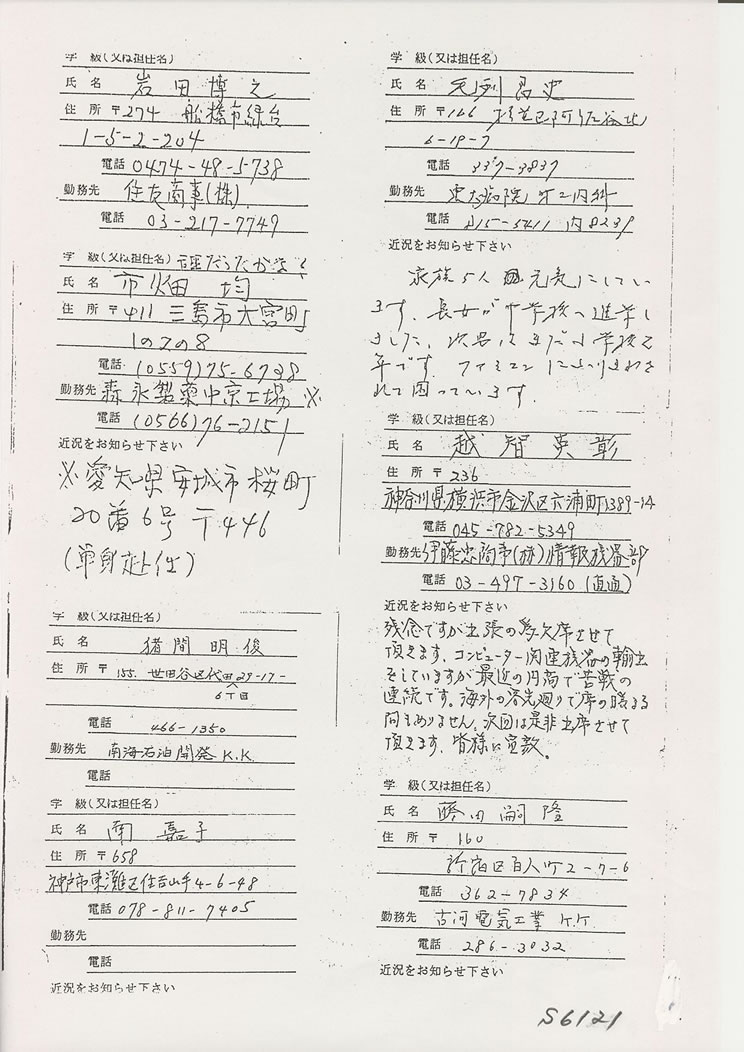 学 級(又は担任名)
氏 名 岩田博之
住 所 〒274 船橋市緑台
1-5-2-204
電話 0474-48-5738
勤務先 住友商事(株)
電話 03-217-7749
学 級(又は担任名)
氏 名 市畑 均
住 所 〒411 三島市大宮町
1の2の8
電話 (0559)75-6728
勤務先 森永製菓中京工場 ※
電話 (0566)76-2151
近況をお知らせ下さい
※愛知県安城市桜町
20番6号 〒446
(単身赴任)
学 級(又は担任名)
氏 名 猪間明俊
住 所 〒155. 世田谷区代田29-17-
6丁目
電話 466-1350
勤務先 南海石油開発K.K.
電話
学 級(又は担任名)
氏 名 南 嘉子
住 所 〒658
神戸市東灘区住吉山手4-6-48
電話 078-811-7405
勤務先
電話
近況をお知らせ下さい
学 級(又は担任名)
氏 名 昌史
住 所 〒166 杉並区阿佐谷北
6-19-7
電話 337-3837
勤務先 東大病院 第二内科
電話 815-5411 内8239
近況をお知らせ下さい
家族5人 元気にしてい
ます。長女が中学校へ進学し
ました。次男はまだ小学校2
年です。ファミコンにふりまわさ
れて困っています。
学 級(又は担任名)
氏 名 越智英彰
住 所 〒236
神奈川県横浜市金沢区六浦町1389-14
電話 045-782-5349
勤務先 伊藤忠商事(株)情報機器部
電話 03-497-3160(直通)
近況をお知らせ下さい
残念ですが出張の為欠席させて
頂えます。コンピューター関連機器の輸出
をしていますが最近の円高で苦戦の
連続です。海外の客先廻りで席の暖まる
間もありません。次回は是非出席させて
頂えます。皆様に宜敷。
学 級(又は担任名)
氏 名 藤田嗣隆
住 所 〒 160
新宿区百人町2-7-6
電話 362-7834
勤務先 古河電気工業 K.K.
電話 286-3032
近況をお知らせ下さい
S6121